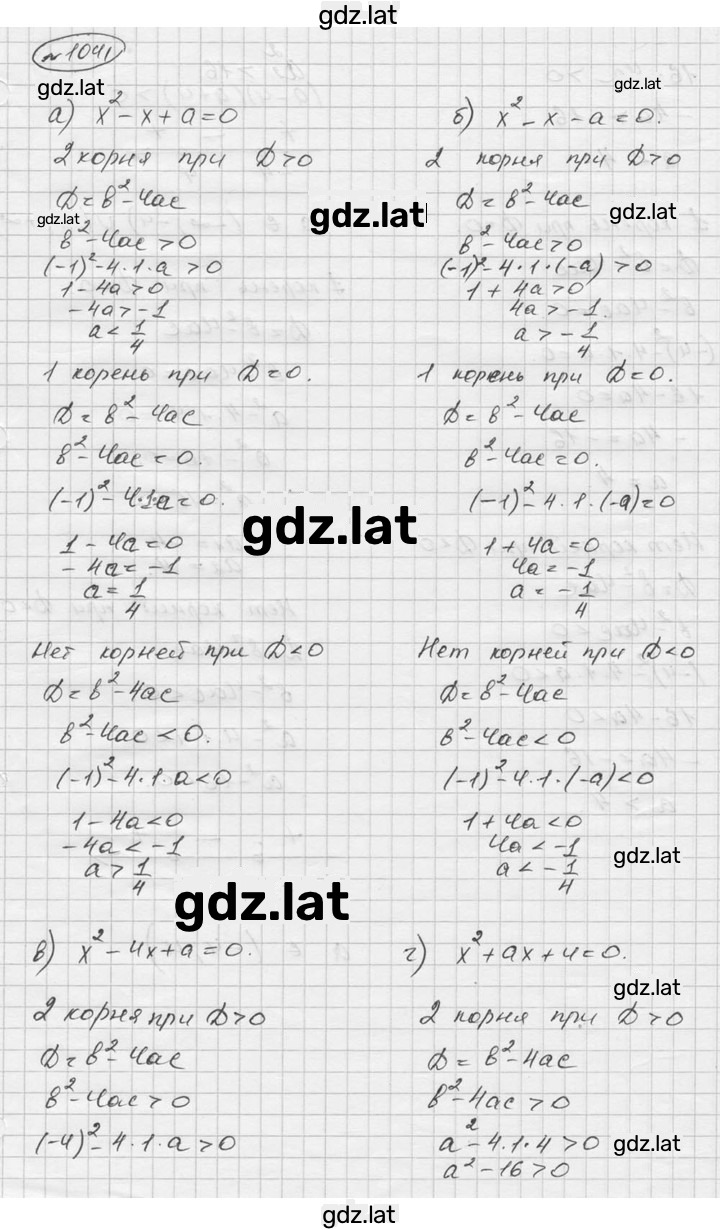 gdz.lat
№1041
gdz.lat
gdz.lat
а) x² - x + a = 0
2 корня при D > 0
D = b² - 4ac
gdz.lat
b² - 4ac > 0
(-1)² - 4·1·a > 0
1 - 4a > 0
-4a > -1
a < 1/4
1 корень при D = 0.
D = b² - 4ac
b² - 4ac = 0.
(-1)² - 4·1·a = 0.
1 - 4a = 0
-4a = -1
a = 1/4
Нет корней при D < 0
D = b² - 4ac
b² - 4ac < 0.
(-1)² - 4·1·a < 0
1 - 4a < 0
-4a < -1
a > 1/4
gdz.lat
gdz.lat
gdz.lat
б) x² - x - a = 0.
2 корня при D > 0
D = b² - 4ac
gdz.lat
b² - 4ac > 0
(-1)² - 4·1·(-a) > 0
1 + 4a > 0
4a > -1.
a > -1/4
1 корень при D = 0.
D = b² - 4ac
b² - 4ac = 0.
(-1)² - 4·1·(-a) = 0
1 + 4a = 0
4a = -1
a = -1/4
Нет корней при D < 0
D = b² - 4ac
b² - 4ac < 0
(-1)² - 4·1·(-a) < 0
1 + 4a < 0
4a < -1
a < -1/4
gdz.lat
в) x² - 4x + a = 0.
2 корня при D > 0
D = b² - 4ac
b² - 4ac > 0
(-4)² - 4·1·a > 0
г) x² + ax + 4 = 0.
gdz.lat
2 корня при D > 0
D = b² - 4ac
b² - 4ac > 0
a² - 4·1·4 > 0
gdz.lat
a² - 16 > 0
gdz.lat